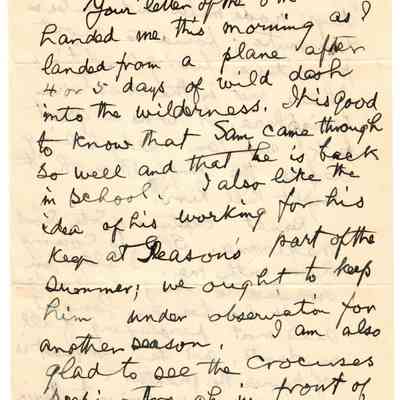 Your letter of the
handed me this morning as I
landed from a plane after
4 or 5 days of wild dash
into the wilderness. It is good
to know that Sam came through
so well and that he is back
in school. I also like the
idea of his working for his
keep at Reasons part of the
summer; we ought to keep
him under observation for
another season. I am also
glad to see the crocuses
in front of